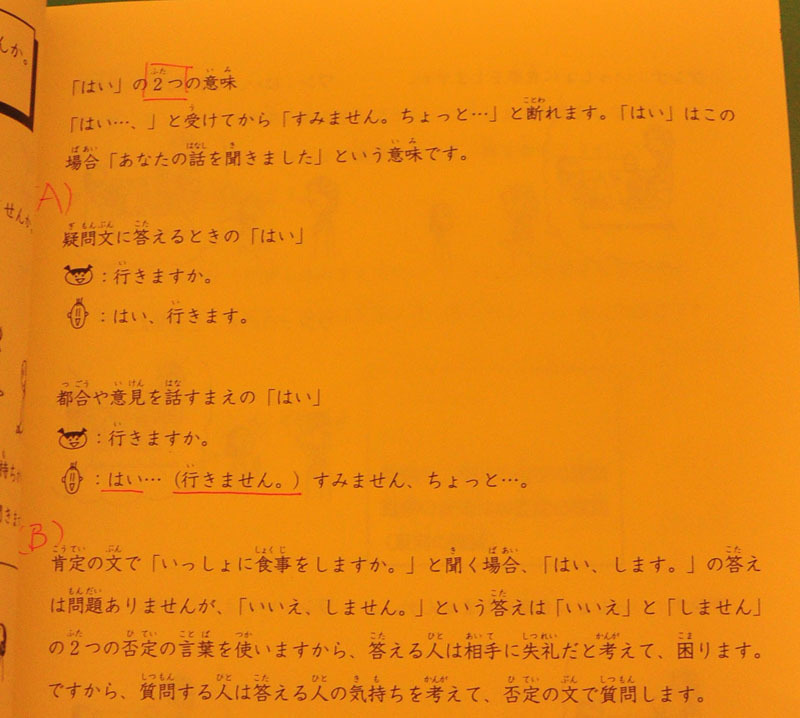 んか。
「はい」の2つの意味
「はい…、」と受けてから「すみません。ちょっと…」と断れます。「はい」はこの
場合「あなたの話を聞きました」という意味です。
A)
せんか
疑問文に答えるときの「はい」
：行きますか。
：はい、行きます。
都合や意見を話すまえの「はい」
：行きますか。
：はい…（行きません。）すみません、ちょっと…。
B)
肯定の文で「いっしょに食事をしますか。」と聞く場合、「はい、します。」の答え
は問題ありませんが、「いいえ、しません。」という答えは「いいえ」と「しません」
の2つの否定の言葉を使いますから、答える人は相手に失礼だと考えて、困ります。
ですから、質問する人は答える人の気持ちを考えて、否定の文で質問します。